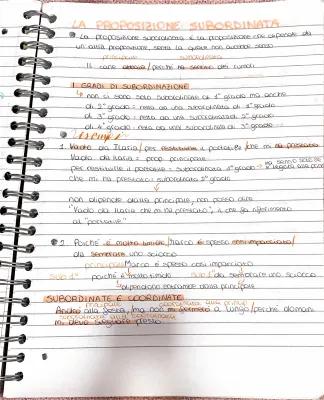 LA PROPOSIZIONE SUBORDINATA
La proposizione subordinata è la proposizione che dipende da
un'altra proposizione, senza la quale non avrebbe senso
principale subordinata
Il cane / perché ha sentito dei rumori
I GRADI DI SUBORDINAZIONE
non ci sono solo subordinate di 1° grado ma anche
di 2° grado: retta da una subordinata di 1° grado
di 3° grado: retta da una subordinata di 2° grado
di 4° grado: retta da una subordinata di 3° grado
Esempi
1. Vado da Ilaria/ per restituirle il portatile/ che mi ha prestato
Vado da Ilaria: prop. principale
per restituirle il portatile: subordinata 1° grado → ha senso solo se
che mi ha prestato: subordinata 2° grado
non dipende dalla principale, non posso dire
"Vado da Ilaria che mi ha prestato", è che fa riferimento
al "portatile"
2. Poiché è molto timido/ Marco è spesso così impacciato/
da sembrare uno sciocco
principale: Marco è spesso così impacciato
Sub 1° poiché è molto timido Sub 1° da sembrare uno sciocco
dipendono entrambe dalla principale
SUBORDINATE E COORDINATE
principale coordinata alla princip
Andrò alla festa, ma non mi fermerò a lungo/ perché domani
subordinata alla coordinata
mi devo svegliare presto